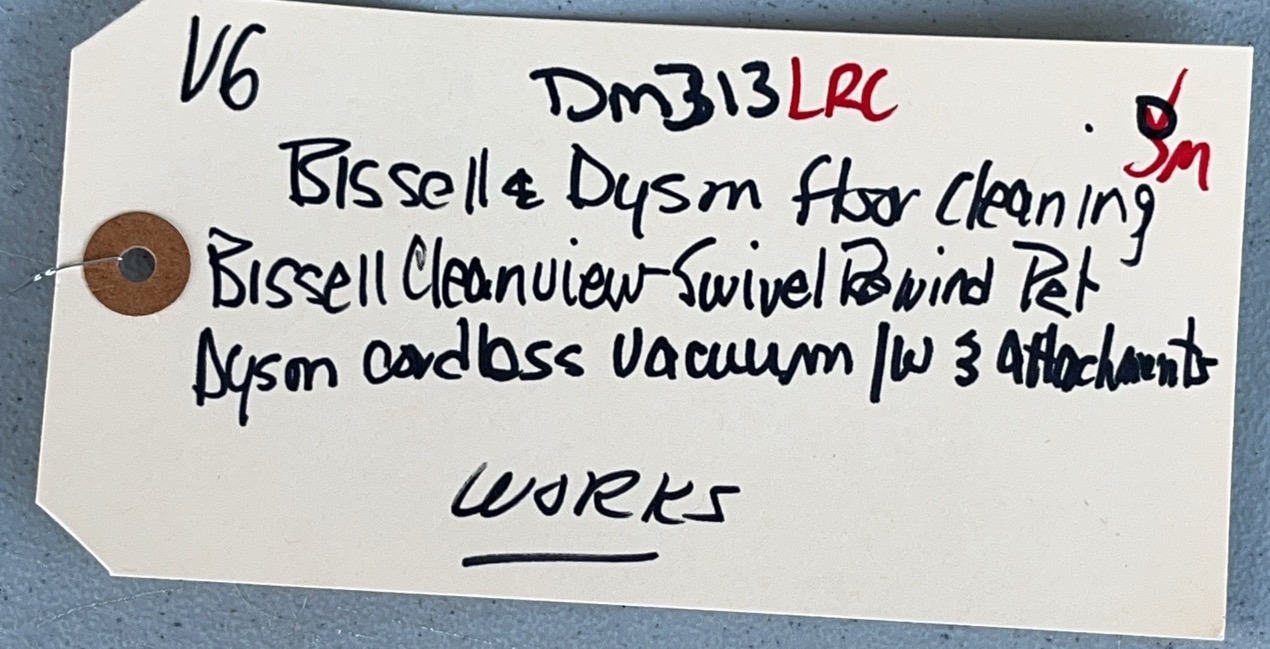 V6
Dm313LRC
SM
Bissell & Dyson floor cleaning
Bissell Cleanview Swivel Rewind Pet
Dyson cordless vacuum /w 3 attachments
WORKS